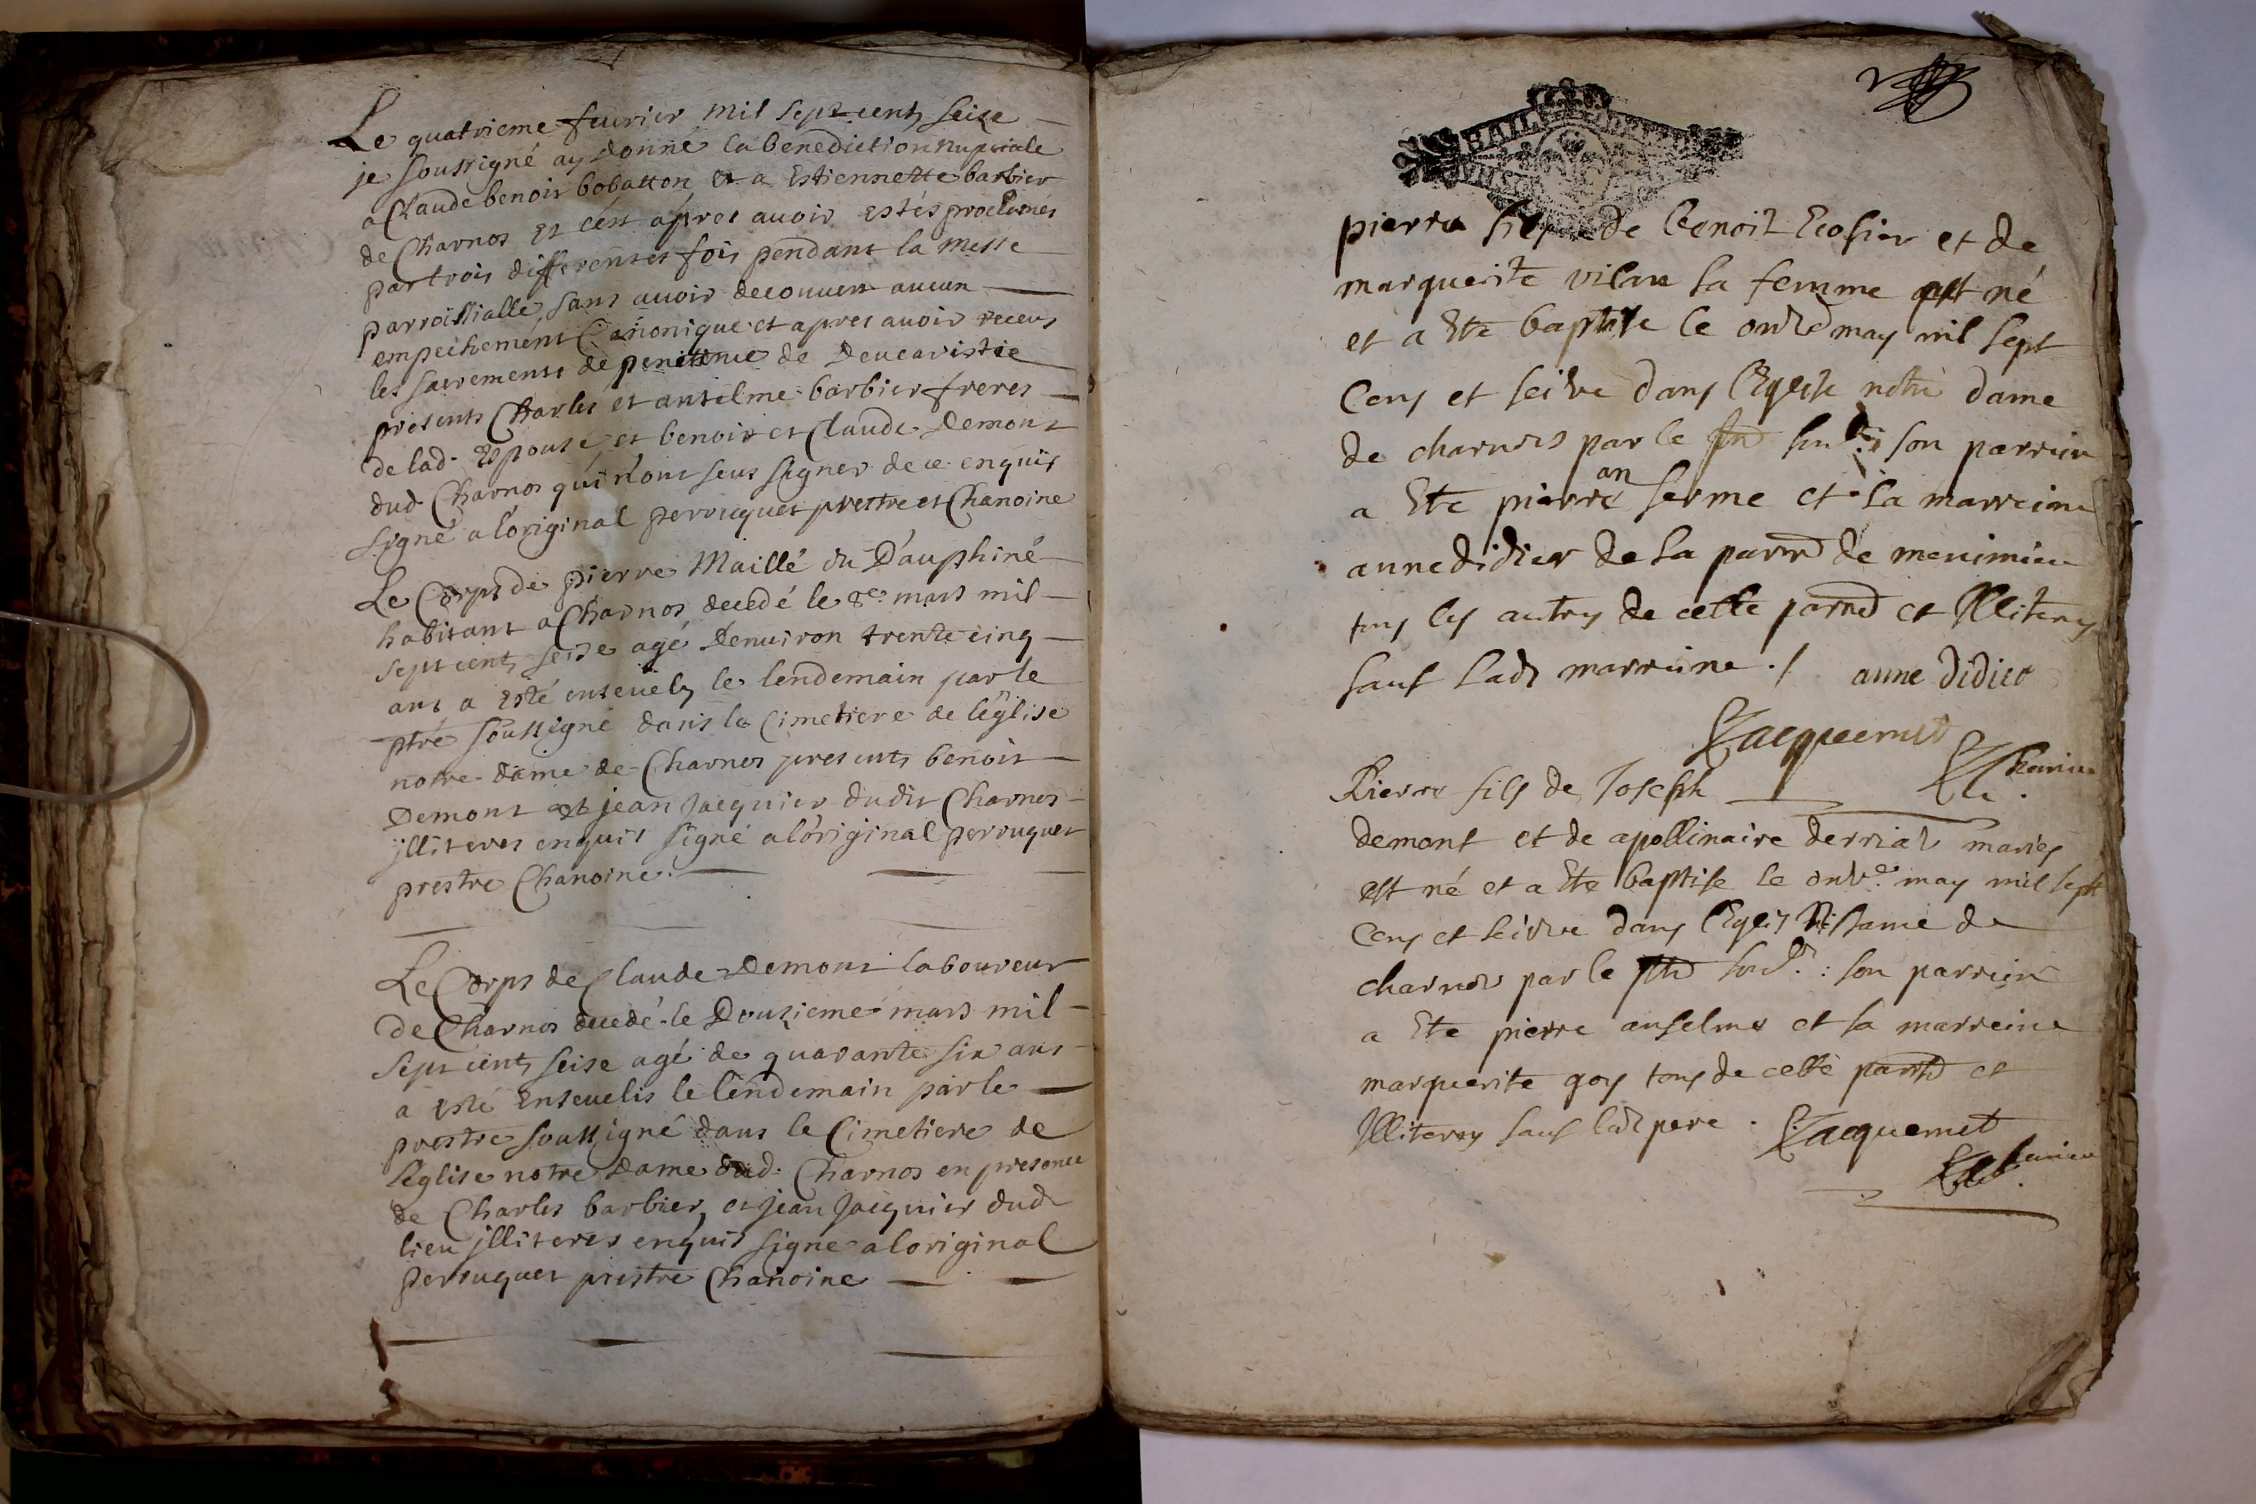 Le quatrieme feurier mil sept cents seize
je soussigné ay donné la benediction nuptiale
a Claude benoit bobatton et a Estiennette barbier
de Charnos et cest apres auoir estés proclamés
par trois differentes fois pendant la messe
parroissialle, sans auoir decouuert aucun
empechement Canonique et apres auoir receus
les sacrements de penittence de Deucaristie
presents Charles et anselme barbier freres
de lad. Espouse, et benoit et Claude Demont
dud. Charnos qui n'ont seus signer de ce enquis
signé a l'original perruquet prestre et Chanoine
Le Corps de pierre Maillé du Dauphiné
habitant a Charnos decedé le 8e. mars mil
sept cents seize agé Denuiron trente cinq
ans a esté enseuely le lendemain par le
ptre soussigné dans la Cimetiere de l'église
notre dame de Charnos presents benoit
Demont et jean jacquier dudit Charnos
jlliteres enquis signé a l'original perruquet
prestre Chanoine.
Le Corps de Claude Demont laboureur
de Charnos decedé le Douzieme mars mil
sept cents seise agé de quarante six ans
a esté Enseuelis le lendemain par le
prestre soussigné dans le Cimetiere de
l'église notre Dame dud. Charnos en presence
de Charles barbier, et jean jacquier dud
lieu jlliteres enquis signé a loriginal
perruquet prestre Chanoine
pierre fils de benoit et de
marguerite vilan sa femme est né
et a ete baptise le onze may mil sept
Cens et seize dans l'Eglise notre dame
de charnos par le son parrein
a ete pierre an serme et la marreine
anne didier de la parred de meximieu
tous les autres de cette parred et Illiteres
sauf lad marreine ./ anne didier
Jacquemet
Pierre fils de Joseph
demont et de apollinaire derrias maries
est né et a ete baptise le onze may mil sept
Cens et seizve dans l'Eglis Ne dame de
charnos par le son parrein
a ete pierre anselme et la marreine
marguerite goy tous de cette parred et
Illiteres sauf lad pere . Jacquemet